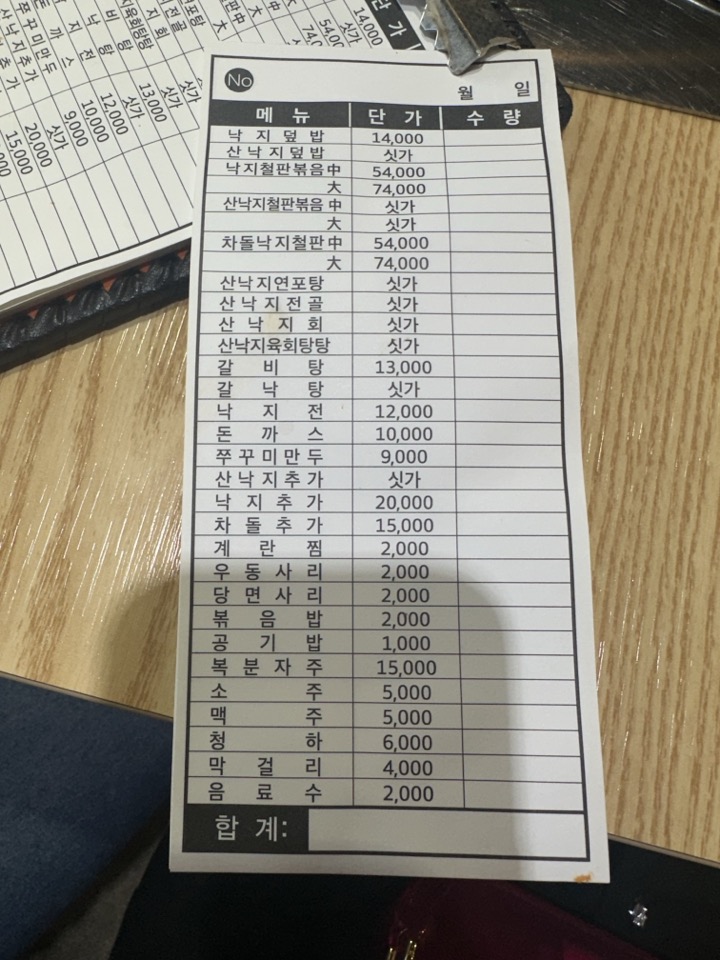 No
월 일
메 뉴 단 가 수 량
낙 지 덮 밥 14,000
산 낙 지 덮 밥 싯가
낙지철판볶음 中 54,000
大 74,000
산낙지철판볶음 中 싯가
大 싯가
차돌낙지철판 中 54,000
大 74,000
산낙지연포탕 싯가
산 낙 지 전 골 싯가
산 낙 지 회 싯가
산낙지육회탕탕 싯가
갈 비 탕 13,000
갈 낙 탕 싯가
낙 지 전 12,000
돈 까 스 10,000
쭈 꾸 미 만 두 9,000
산 낙 지 추 가 싯가
낙 지 추 가 20,000
차 돌 추 가 15,000
계 란 찜 2,000
우 동 사 리 2,000
당 면 사 리 2,000
볶 음 밥 2,000
공 기 밥 1,000
복 분 자 주 15,000
소 주 5,000
맥 주 5,000
청 하 6,000
막 걸 리 4,000
음 료 수 2,000
합 계: